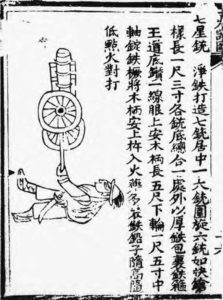 七星銃　淨鉄打造七銃居中一大銃圍旋六銃如快鎗
樣長一尺三寸各銃底總合一處外以厚鉄包裹鉄箍
道底鑽一線眼上安木柄長五尺下輪一尺五寸中
軸錠鉄橛將木柄安上杵入火藥多裝鉄鉛子隨高隨
低點火對打